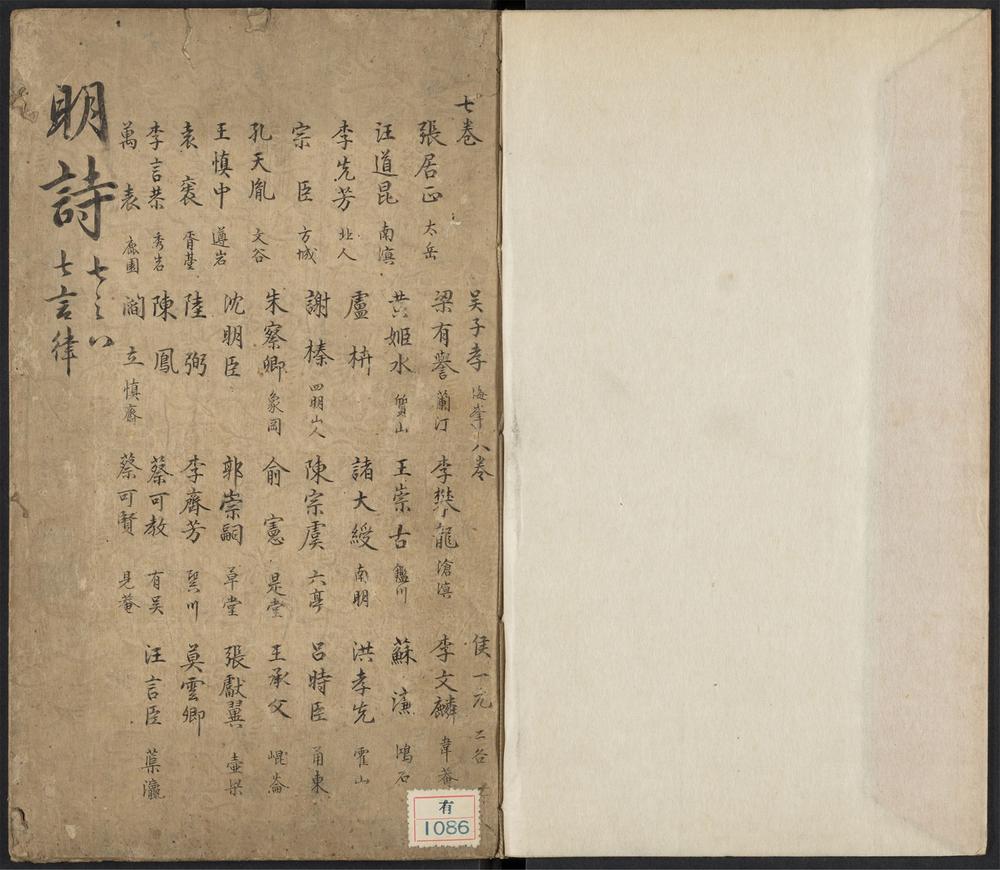 七卷
張居正 太岳
汪道昆 南溟
李先芳 北人
宗臣 方城
孔天胤 文谷
王慎中 遵岩
袁袠 胥臺
李言恭 秀岩
萬表 鹿園
吴子孝 海峯
梁有譽 蘭汀
黃姬水 質山
盧柟
謝榛 四明山人
朱察卿 象岡
沈明臣
陸弼
陳鳳
立 慎齋
八卷
李攀龍 滄溟
王崇古 鑑川
諸大綬 南明
陳宗虞 六亭
俞憲 是堂
郭崇嗣 草堂
李齊芳 巽川
蔡可教 有吴
蔡可賢 見菴
侯一元 二谷
李文麟 葦菴
蘇濂 鴻石
洪孝先 霍山
呂時臣 甬東
王承父 崐崙
張獻翼 壺梁
莫雲卿
汪言臣 瀛
明詩 七之八
七言律
有
1086